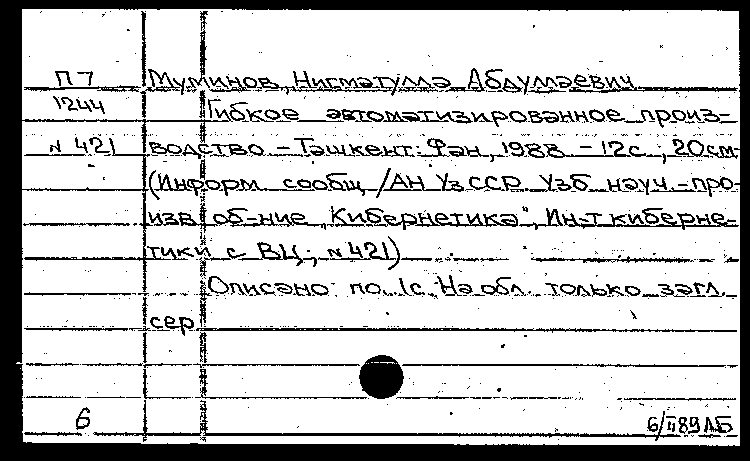 П 7 Муминов, Нигматулла Абдумаевич
1244 Гибкое автоматизированное произ-
N 421 водство. – Ташкент: Фан, 1988. – 12с.; 20см.
(Информ. сообщ. / АН УзССР. Узб. науч.-про-
изв. об-ние "Кибернетика", Ин-т киберне-
тики с ВЦ; N 421)
Описано по 1с. На обл. только загл.
сер.
6 6/II89 АБ